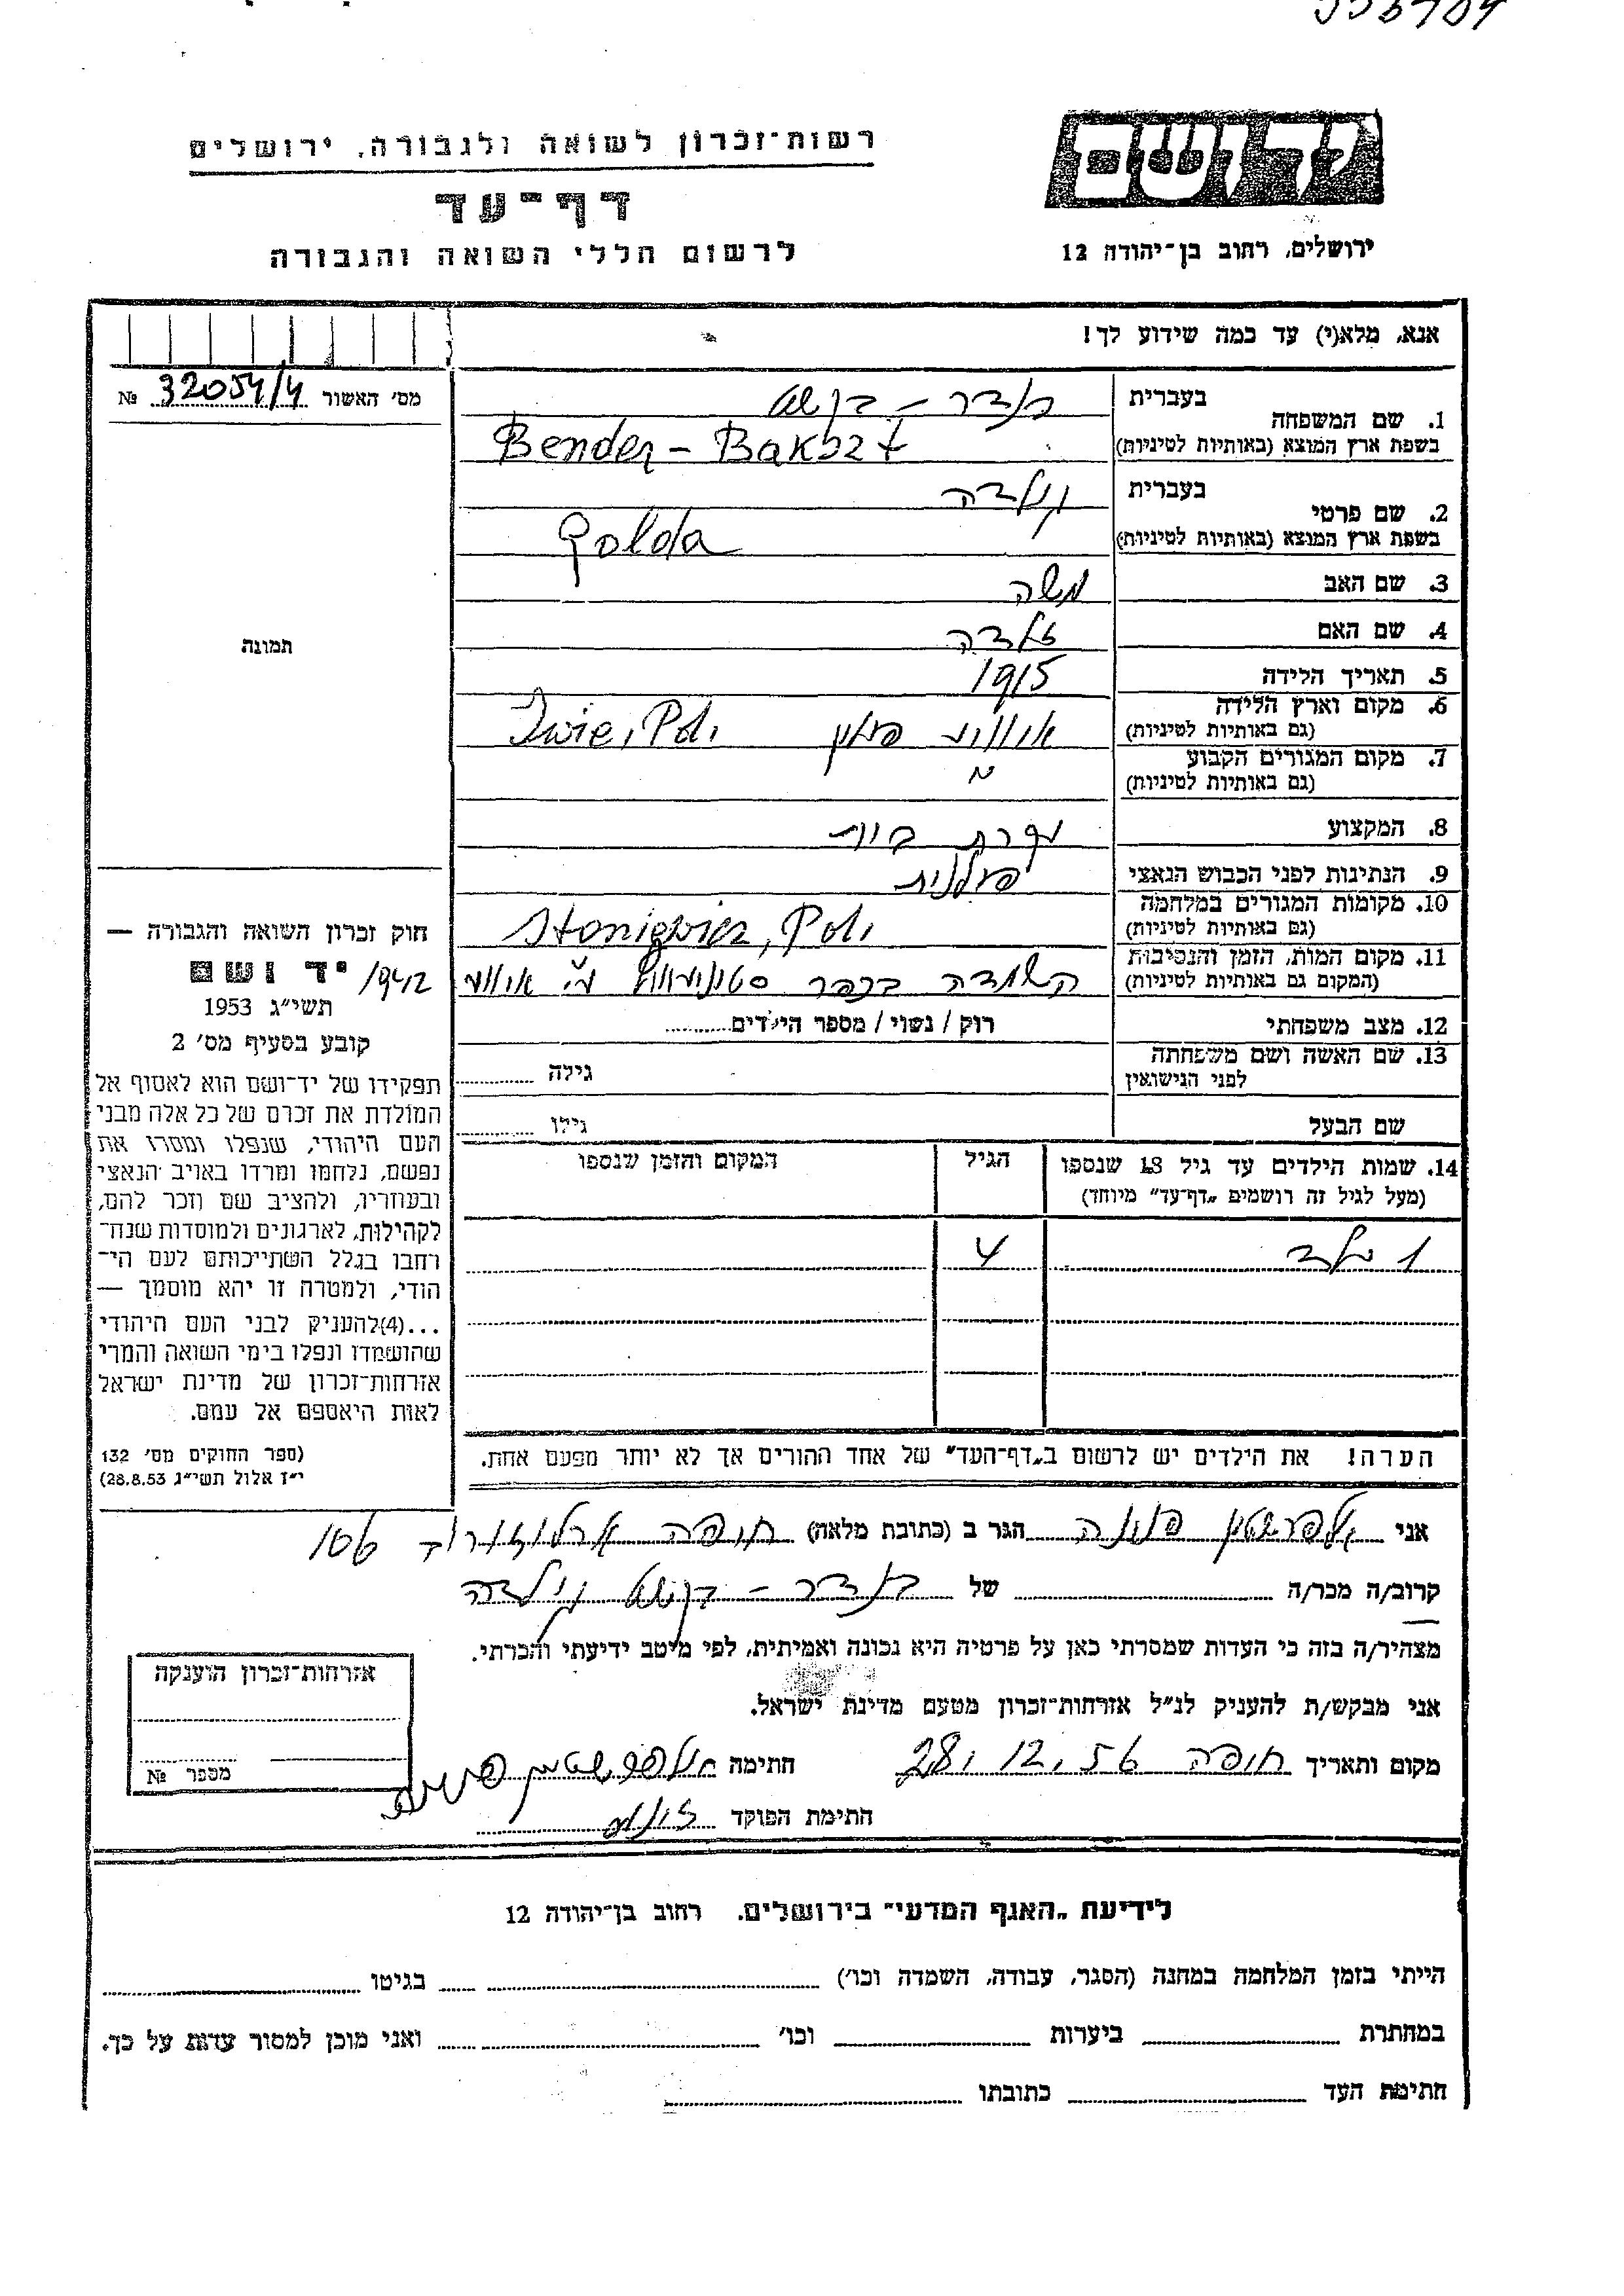 רשות־זכרון לשואה ולגבורה, ירושלים
דף־עד
לרשום חללי השואה והגבורה
יד ושם
ירושלים, רחוב בן־יהודה 12
אנא, מלא(י) עד כמה שידוע לך!
מס׳ האשור № 32054/4
1. שם המשפחה בעברית בנדר – בקשט
בשפת ארץ המוצא (באותיות לטיניות) Bender – Bakszt
2. שם פרטי בעברית גולדה
בשפת ארץ המוצא (באותיות לטיניות) Golda
3. שם האב משה
4. שם האם
5. תאריך הלידה 1915
6. מקום וארץ הלידה (גם באותיות לטיניות) פולין Iwie, Pol.
7. מקום המגורים הקבוע (גם באותיות לטיניות)
8. המקצוע עקרת בית
9. הנתינות לפני הכבוש הנאצי פולנית
10. מקומות המגורים במלחמה (גם באותיות לטיניות) Stoniewicz, Pol.
11. מקום המות, הזמן והנסיבות (המקום גם באותיות לטיניות) הושמדה בכפר 1942
12. מצב משפחתי רוק / נשוי / מספר הילדים
13. שם האשה ושם משפחתה לפני הנישואין גילה
שם הבעל גילו
14. שמות הילדים עד גיל 18 שנספו (מעל לגיל זה רושמים „דף־עד״ מיוחד) הגיל המקום והזמן שנספו
1 ילד 4
הערה! את הילדים יש לרשום ב„דף־העד״ של אחד ההורים אך לא יותר מפעם אחת.
תמונה
חוק זכרון השואה והגבורה —
יד ושם
תשי״ג 1953
קובע בסעיף מס׳ 2
תפקידו של יד־ושם הוא לאסוף אל
המולדת את זכרם של כל אלה מבני
העם היהודי, שנפלו ומסרו את
נפשם, נלחמו ומרדו באויב הנאצי
ובעוזריו, ולהציב שם וזכר להם,
לקהילות, לארגונים ולמוסדות שנח־
רחבו בגלל השתייכותם לעם הי־
הודי, ולמטרה זו יהא מוסמך —
...(4)להעניק לבני העם היהודי
שהושמדו ונפלו בימי השואה והמרי
אזרחות־זכרון של מדינת ישראל
לאות היאספם אל עמם.
(ספר החוקים מס׳ 132
י״ז אלול תשי״ג 28.8.53)
אני פניה הגר ב (כתובת מלאה) חיפה ארלוזורוב
קרוב/ה מכר/ה של בנדר – בקשט גולדה
מצהיר/ה בזה כי העדות שמסרתי כאן על פרטיה היא נכונה ואמיתית, לפי מיטב ידיעתי והכרתי.
אני מבקש/ת להעניק לנ״ל אזרחות־זכרון מטעם מדינת ישראל.
מקום ותאריך חיפה 28.12.56 חתימה
חתימת הפוקד
אזרחות־זכרון הוענקה
מספר №
לידיעת „האגף המדעי״ בירושלים. רחוב בן־יהודה 12
הייתי בזמן המלחמה במחנה (הסגר, עבודה, השמדה וכו׳) בגיטו
במחתרת ביערות וכו׳ ואני מוכן למסור עדות על כך.
חתימת העד כתובתו